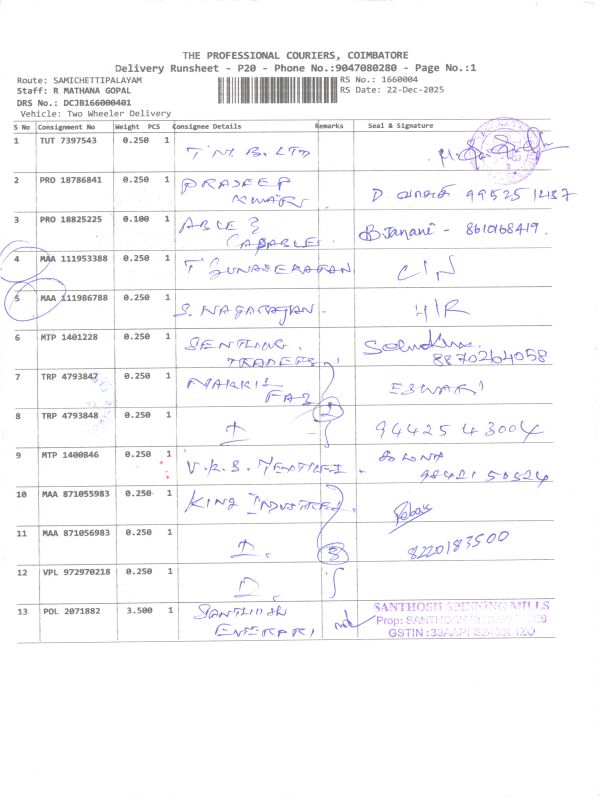 THE PROFESSIONAL COURIERS, COIMBATORE
Delivery Runsheet - P20 - Phone No.:9047080280 - Page No.:1
Route: SAMICHETTIPALAYAM
RS No.: 1660004
Staff: R MATHANA GOPAL
RS Date: 22-Dec-2025
DRS No.: DCJB166000401
Vehicle: Two Wheeler Delivery
S No Consignment No Weight PCS Consignee Details Remarks Seal & Signature
1 TUT 7397543 0.250 1 T M B. LTD
2 PRO 18786841 0.250 1 PRADEEP
KUMAR
3 PRO 18825225 0.100 1 ABLE &
CAPABLE. B.Janani - 8610168419.
4 MAA 111953388 0.250 1 T GUNASEKARAN C/N
5 MAA 111986788 0.250 1 S. NAGARAJAN. H/R
6 MTP 1401228 0.250 1 SENTHUR.
TRADERS 8870264058
7 TRP 4793847 0.250 1 NAKKIS
FAB ESWARI
2
8 TRP 4793848 0.250 1 94425 43004
9 MTP 1400846 0.250 1 V.K.S. TEXTILE
98421 50524
10 MAA 871055983 0.250 1 KING INDUSTRIES
11 MAA 871056983 0.250 1 3 8220183500
12 VPL 972970218 0.250 1
13 POL 2071882 3.500 1 SANTHOSH
ENTERPRI
SANTHOSH SPINNING MILLS
Prop: SANTHOSH
GSTIN :